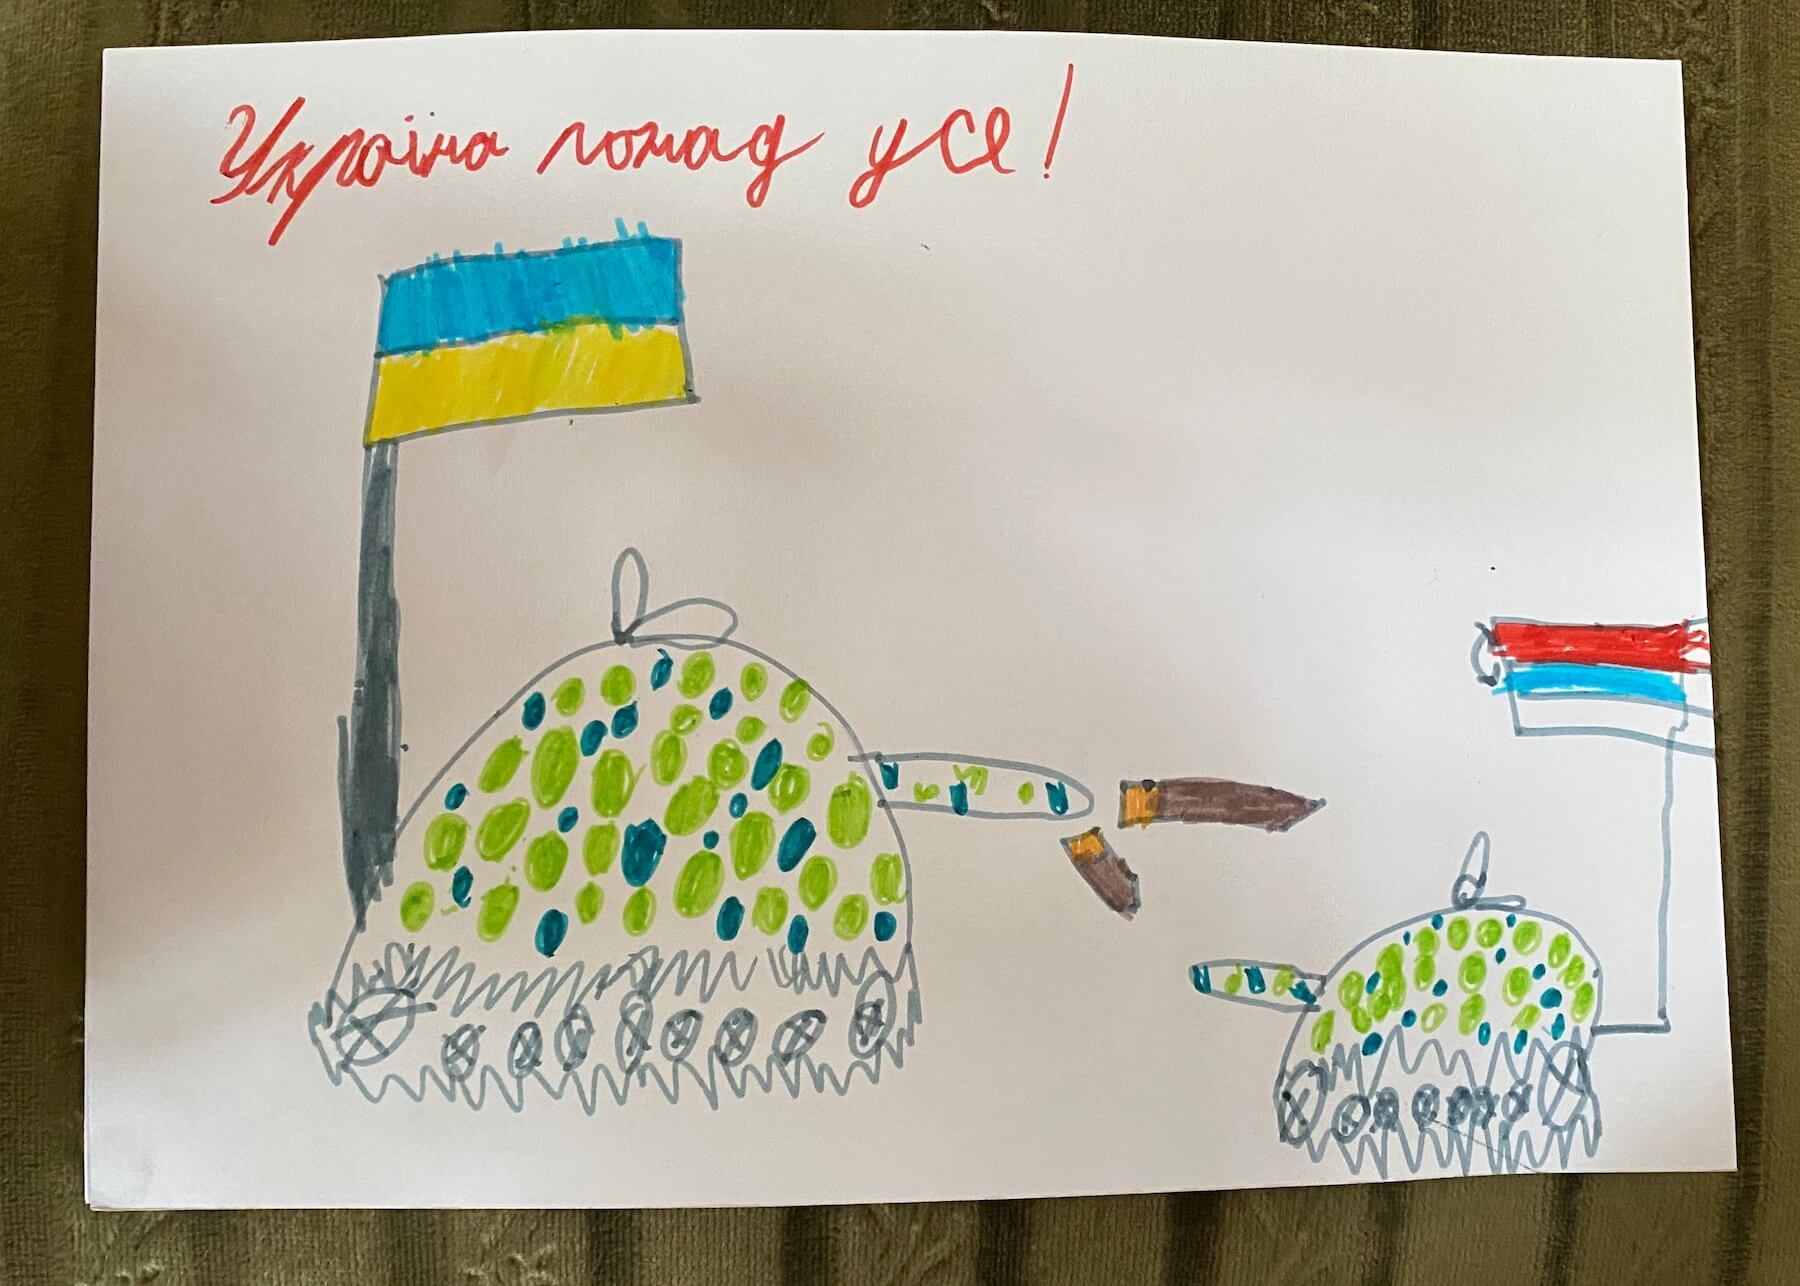 Україна понад усе!